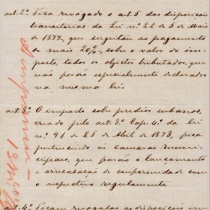 art. 2º Fica revogado o art. 5 das disposições
transitorias da Lei nº 22 de 5 de Maio
de 1874, que sugeitou ao pagamento
de mais 20%, sobre o valor do im-
posto, todos os objectos tributados, que
não forão especialmente declarados
na mesma lei
art. 3º O imposto sobre predios urbanos,
creado pelo art. 3º Cap. 4º da Lei
nº 21 de 25 de Abril de 1873, fica
pertencendo ás Camaras Munici-
cipaes, que farão o lançamento
e arrecadação de conformidade com
o respectivo regulamento.
art. 4º Ficam revogadas as disposições em